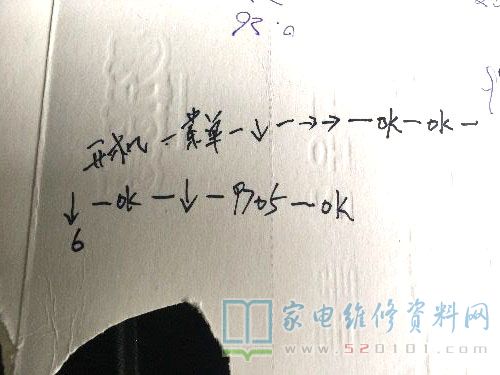 93.0
开机 - 菜单 - ↓ - → → - ok - ok -
↓ - ok - ↓ - 9705 - ok
6
家电维修资料网
www.520101.com